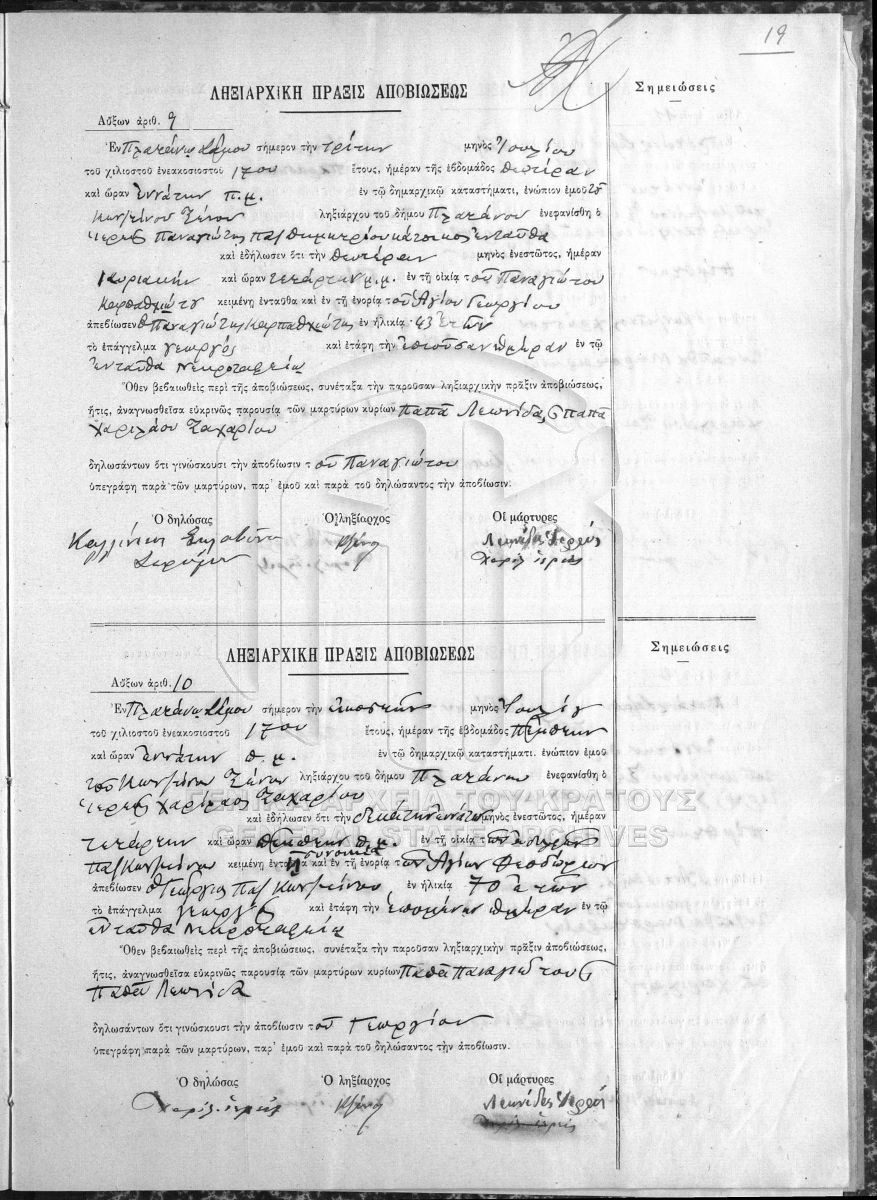 19
ΛΗΞΙΑΡΧΙΚΗ ΠΡΑΞΙΣ ΑΠΟΒΙΩΣΕΩΣ
Σημειώσεις
Αὔξων ἀριθ. 9
Ἐν Πλατάνῳ Σάμου σήμερον τὴν τρίτην μηνὸς Ἰουλίου
τοῦ χιλιοστοῦ ἐνεακοσιοστοῦ 17ου ἔτους, ἡμέραν τῆς ἑβδομάδος Δευτέραν
καὶ ὥραν ἐννάτην π.μ. ἐν τῷ δημαρχικῷ καταστήματι, ἐνώπιον ἐμοῦ τοῦ
Κωνστίνου Ξένου ληξιάρχου τοῦ δήμου Πλατάνου ἐνεφανίσθη ὁ
ἱερεὺς Παναγιώτης Παδημητρίου κάτοικος ἐνταῦθα
καὶ ἐδήλωσεν ὅτι τὴν δευτέραν μηνὸς ἐνεστῶτος, ἡμέραν
Κυριακὴν καὶ ὥραν τετάρτην μ.μ. ἐν τῇ οἰκίᾳ τοῦ Παναγιώτου
Καρπαθιώτου κειμένῃ ἐνταῦθα καὶ ἐν τῇ ἐνορίᾳ τοῦ Ἁγίου Γεωργίου
ἀπεβίωσεν ὁ Παναγιώτης Καρπαθιώτης ἐν ἡλικίᾳ 43 ἐτῶν
τὸ ἐπάγγελμα γεωργὸς καὶ ἐτάφη τὴν ἐπιοῦσαν ἡμέραν ἐν τῷ
ἐνταῦθα Νεκροταφείῳ
Ὅθεν βεβαιωθεὶς περὶ τῆς ἀποβιώσεως, συνέταξα τὴν παροῦσαν ληξιαρχικὴν πρᾶξιν ἀποβιώσεως,
ἥτις, ἀναγνωσθεῖσα εὐκρινῶς παρουσίᾳ τῶν μαρτύρων κυρίων παπᾶ Λεωνίδα, ϛ παπα
Χαριλάου Ζαχαρίου
δηλωσάντων ὅτι γινώσκουσι τὴν ἀποβίωσιν τοῦ Παναγιώτου
ὑπεγράφη παρὰ τῶν μαρτύρων, παρ' ἐμοῦ καὶ παρὰ τοῦ δηλώσαντος τὴν ἀποβίωσιν:
Ὁ δηλώσας Ὁ ληξίαρχος Οἱ μάρτυρες
ΚΞένος Λεωνίδας Ἱερεύς
Χαρίλ. ἱερεύς
ΛΗΞΙΑΡΧΙΚΗ ΠΡΑΞΙΣ ΑΠΟΒΙΩΣΕΩΣ
Σημειώσεις
Αὔξων ἀριθ. 10
Ἐν Πλατάνῳ Σάμου σήμερον τὴν εἰκοστὴν μηνὸς Ἰουλίου
τοῦ χιλιοστοῦ ἐνεακοσιοστοῦ 17ου ἔτους, ἡμέραν τῆς ἑβδομάδος Πέμπτην
καὶ ὥραν ἐννάτην π.μ. ἐν τῷ δημαρχικῷ καταστήματι. ἐνώπιον ἐμοῦ
τοῦ Κωνστίνου Ξένου ληξιάρχου τοῦ δήμου Πλατάνου ἐνεφανίσθη ὁ
ἱερεὺς Χαρίλαος Ζαχαρίου
καὶ ἐδήλωσεν ὅτι τὴν δεκάτην ἐννάτην μηνὸς ἐνεστῶτος, ἡμέραν
τετάρτην καὶ ὥραν πέμπτην π.μ. ἐν τῇ οἰκίᾳ τοῦ
ΠαΚωνστίνου κειμένῃ ἐνταῦθα συνοικίᾳ καὶ ἐν τῇ ἐνορίᾳ τῶν Ἁγίων Θεοδώρων
ἀπεβίωσεν ὁ Γεώργιος ΠαΚωνστίνου ἐν ἡλικίᾳ 70 ἐτῶν
τὸ ἐπάγγελμα γεωργὸς καὶ ἐτάφη τὴν ἑπομένην ἡμέραν ἐν τῷ
ἐνταῦθα Νεκροταφείῳ
Ὅθεν βεβαιωθεὶς περὶ τῆς ἀποβιώσεως, συνέταξα τὴν παροῦσαν ληξιαρχικὴν πρᾶξιν ἀποβιώσεως,
ἥτις, ἀναγνωσθεῖσα εὐκρινῶς παρουσίᾳ τῶν μαρτύρων κυρίων Παπᾶ Παναγιώτου ϛ
Παπᾶ Λεωνίδα
δηλωσάντων ὅτι γινώσκουσι τὴν ἀποβίωσιν τοῦ Γεωργίου
ὑπεγράφη παρὰ τῶν μαρτύρων, παρ' ἐμοῦ καὶ παρὰ τοῦ δηλώσαντος τὴν ἀποβίωσιν.
Ὁ δηλώσας Ὁ ληξίαρχος Οἱ μάρτυρες
Χαρίλ. ἱερεύς ΚΞένος Λεωνίδας Ἱερεύς
ΓΕΝΙΚΑ ΑΡΧΕΙΑ ΤΟΥ ΚΡΑΤΟΥΣ
GENERAL STATE ARCHIVES